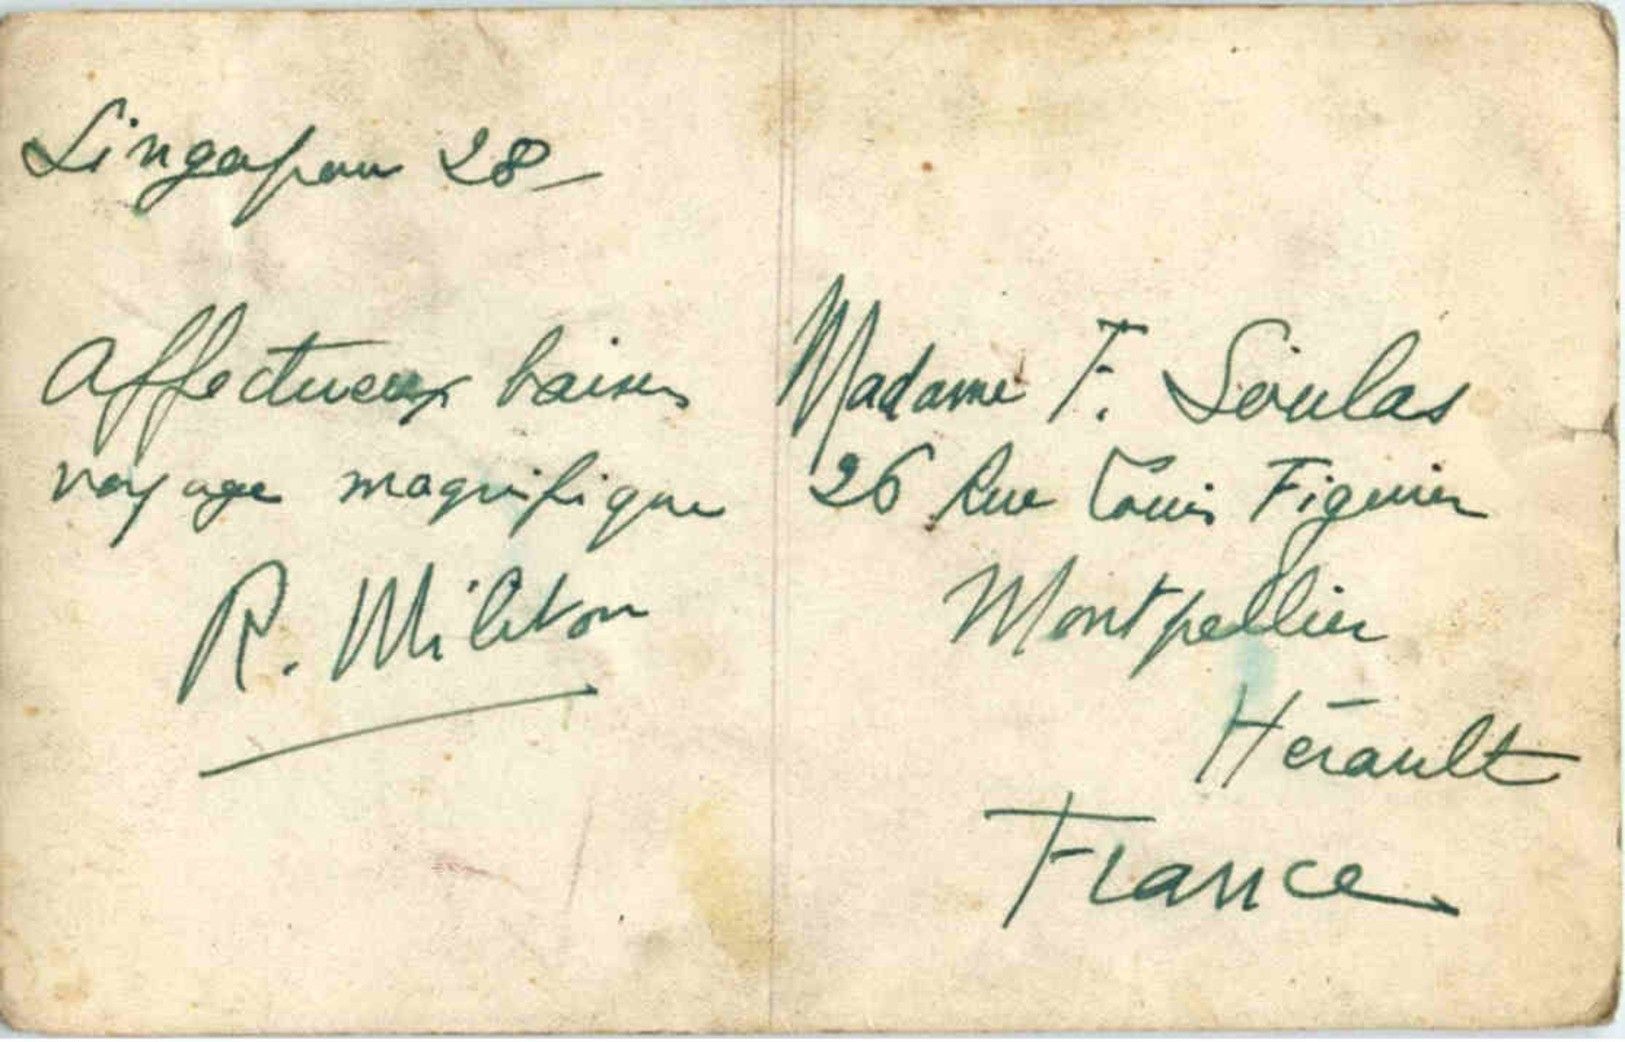 Singapour 28 -
Affectueux baisers
voyage magnifique
R. Militon
Madame F. Soulas
26 Rue Louis Figuier
Montpellier
Hérault
France